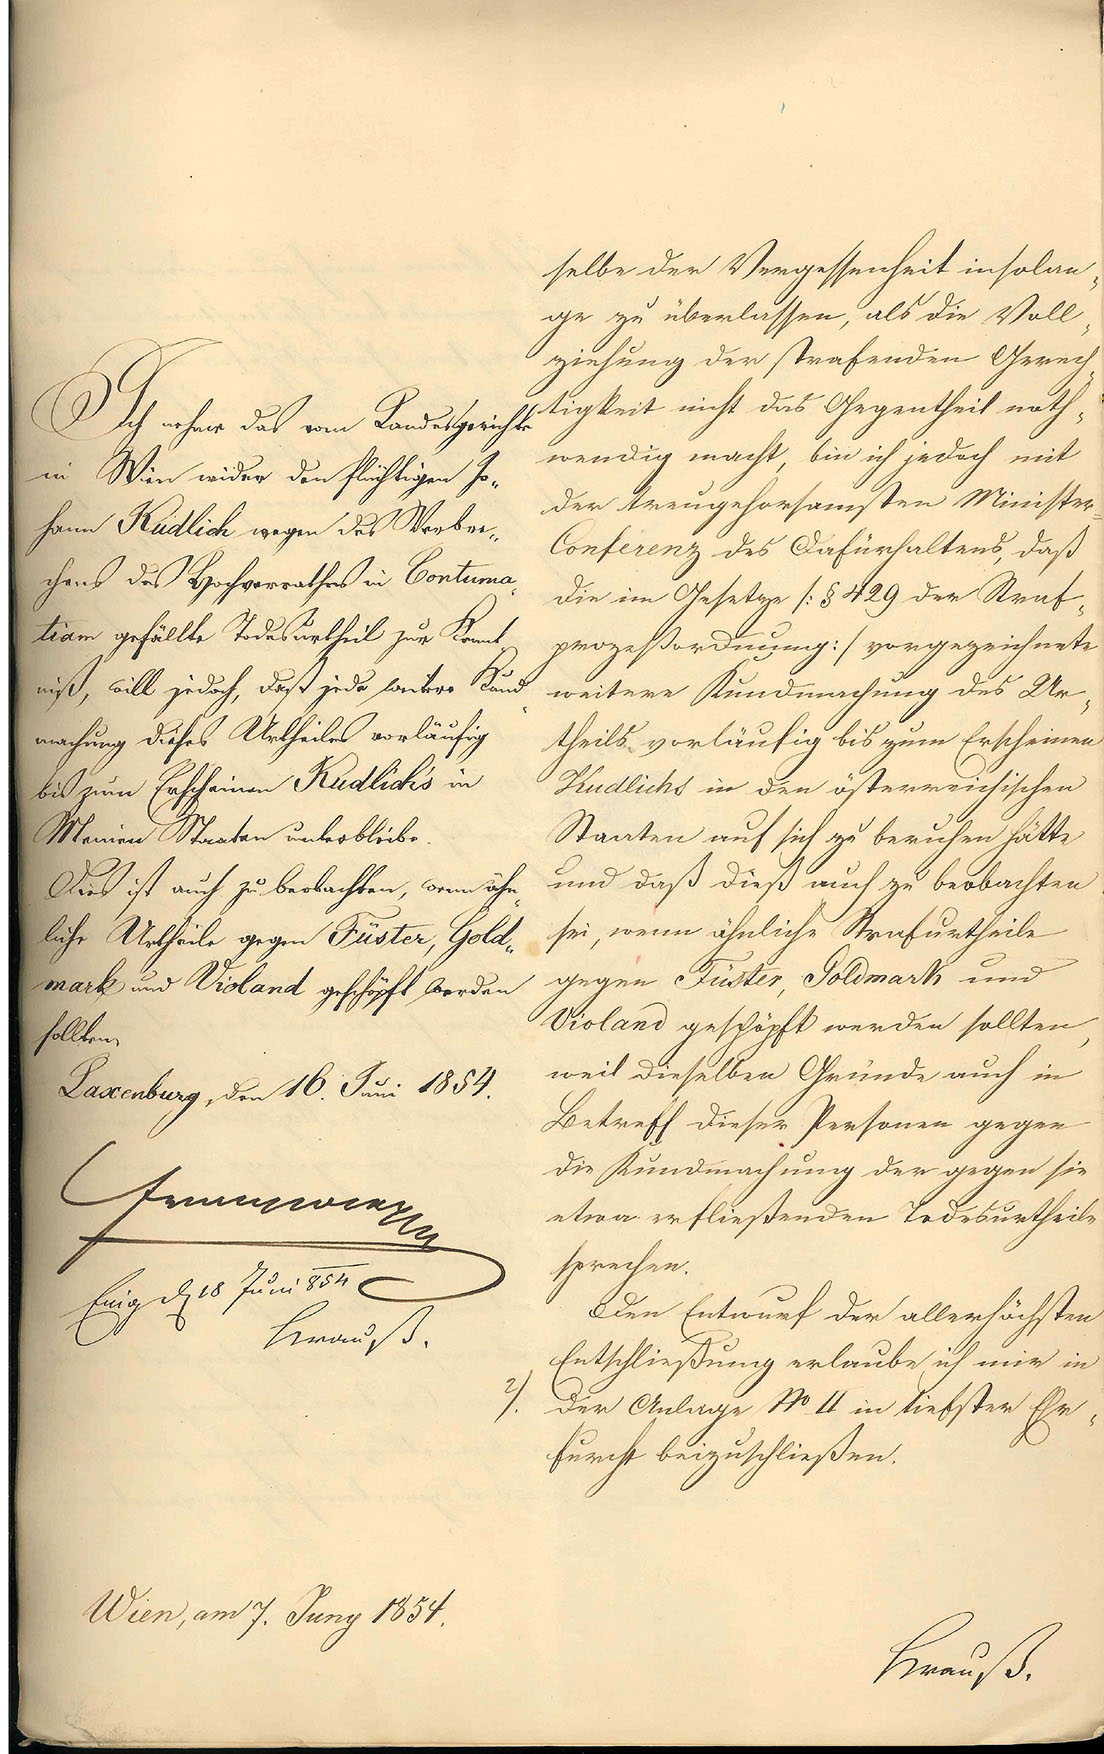 selbe der Vergessenheit insolan-
ge zu überlassen, als die Voll-
ziehung der strafenden Gerech-
tigkeit nicht das Gegentheil noth-
wendig macht, bin ich jedoch mit
der treugehorsamsten Minister-
Conferenz des Dafürhaltens, daß
die im Gesetze /: § 429 der Straf-
prozeßordnung :/ vorgezeichnete
weitere Kundmachung des Ur-
theils vorläufig bis zum Erscheinen
Kudlichs in den österreichischen
Staaten auf sich zu beruhen hätte
und daß dieß auch zu beobachten
sei, wenn ähnliche Strafurtheile
gegen Füster, Goldmark und
Violand geschöpft werden sollten,
weil dieselben Gründe auch in
Betreff dieser Personen gegen
die Kundmachung der gegen sie
etwa erfließenden Todesurtheile
sprechen.
Den Entwurf der allerhöchsten
Entschließung erlaube ich mir in
2/. der Anlage No II in tiefster Ehr-
furcht beizuschließen.
Krauß.
Wien, am 7. Juny 1854.
Ich nehme das vom Landesgerichte
in Wien wider den flüchtigen Jo-
hann Kudlich wegen des Verbre-
chens des Hochverrathes in Contuma-
tiam gefällte Todesurtheil zur Kennt-
niß, will jedoch, daß jede weitere Kund-
machung dieses Urtheiles vorläufig
bis zum Erscheinen Kudlichs in
Meinen Staaten unterbleibe.
Dies ist auch zu beobachten, wenn ähn-
liche Urtheile gegen Füster, Gold-
mark und Violand geschöpft werden
sollten.
Laxenburg, den 16. Juni 1854.
Franz Joseph
18 Juni 854
Krauß.